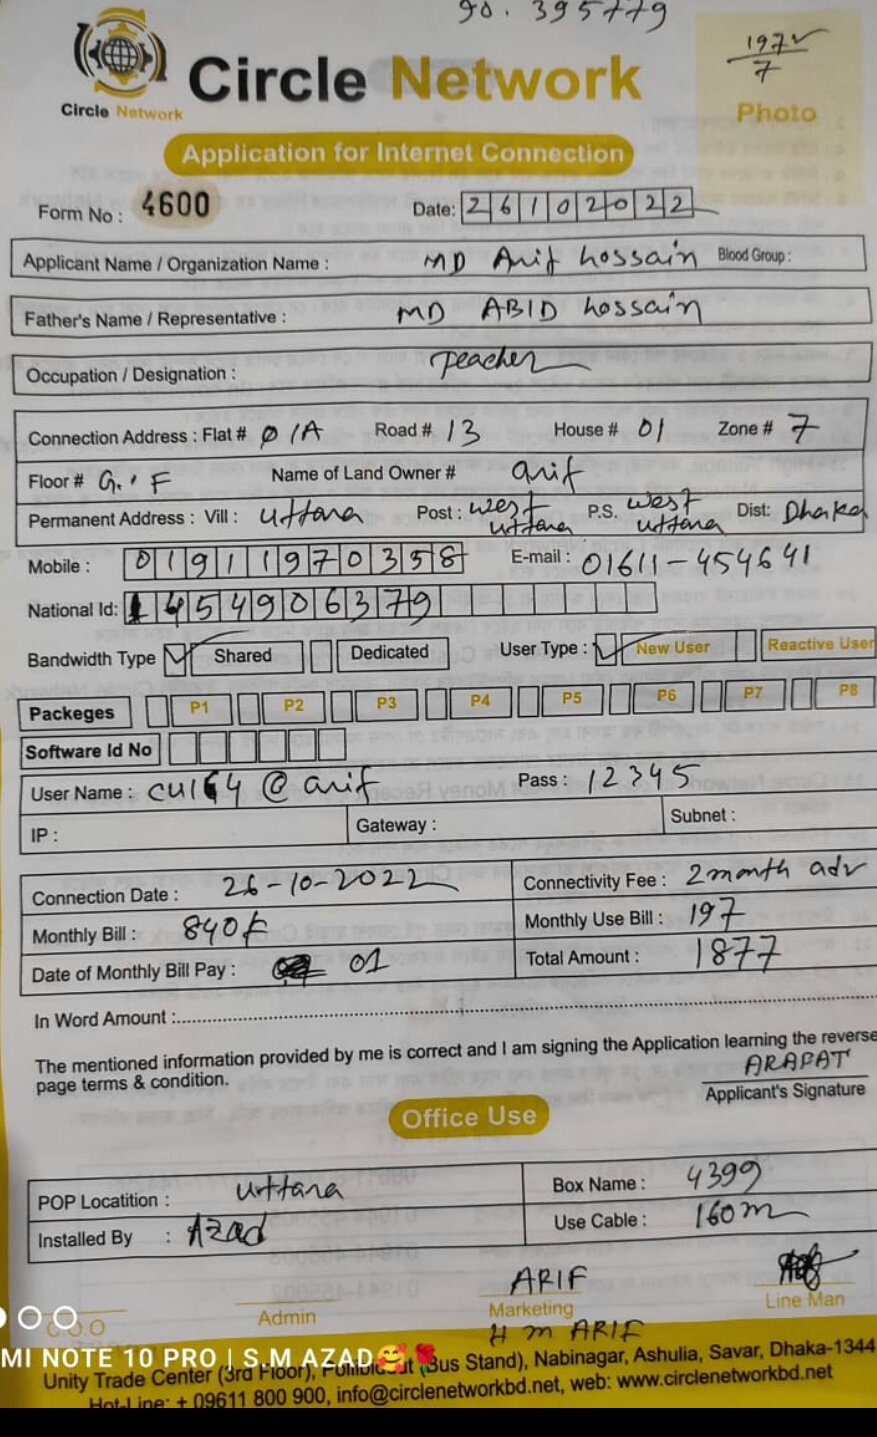 90. 395779
197
7
Circle Network
Circle Network
Photo
Application for Internet Connection
Form No : 4600
Date: 26102022
Applicant Name / Organization Name : MD Arif Hossain Blood Group :
Father's Name / Representative : MD ABID Hossain
Occupation / Designation : Teacher
Connection Address : Flat # 01A Road # 13 House # 01 Zone # 7
Floor # G. F Name of Land Owner # arif
Permanent Address : Vill : uttara Post : west uttara P.S. west uttara Dist: Dhaka
Mobile : 01911970358 E-mail : 01611-454641
National Id: 1454906379
Bandwidth Type Shared Dedicated User Type : New User Reactive User
Packeges P1 P2 P3 P4 P5 P6 P7 P8
Software Id No
User Name : cu164 @ arif Pass : 12345
IP : Gateway : Subnet :
Connection Date : 26-10-2022 Connectivity Fee : 2 month adv
Monthly Bill : 840 Monthly Use Bill : 197
Date of Monthly Bill Pay : 01 Total Amount : 1877
In Word Amount :
The mentioned information provided by me is correct and I am signing the Application learning the reverse
page terms & condition.
ARAPAT
Applicant's Signature
Office Use
POP Locatition : uttara Box Name : 4399
Installed By : Azad Use Cable : 160m
ARIF
C.O.O Admin Marketing Line Man
H m ARIF
MI NOTE 10 PRO | S.M AZAD🥰🌹
Unity Trade Center (3rd Floor), (Bus Stand), Nabinagar, Ashulia, Savar, Dhaka-1344
Hot-Line: + 09611 800 900, info@circlenetworkbd.net, web: www.circlenetworkbd.net